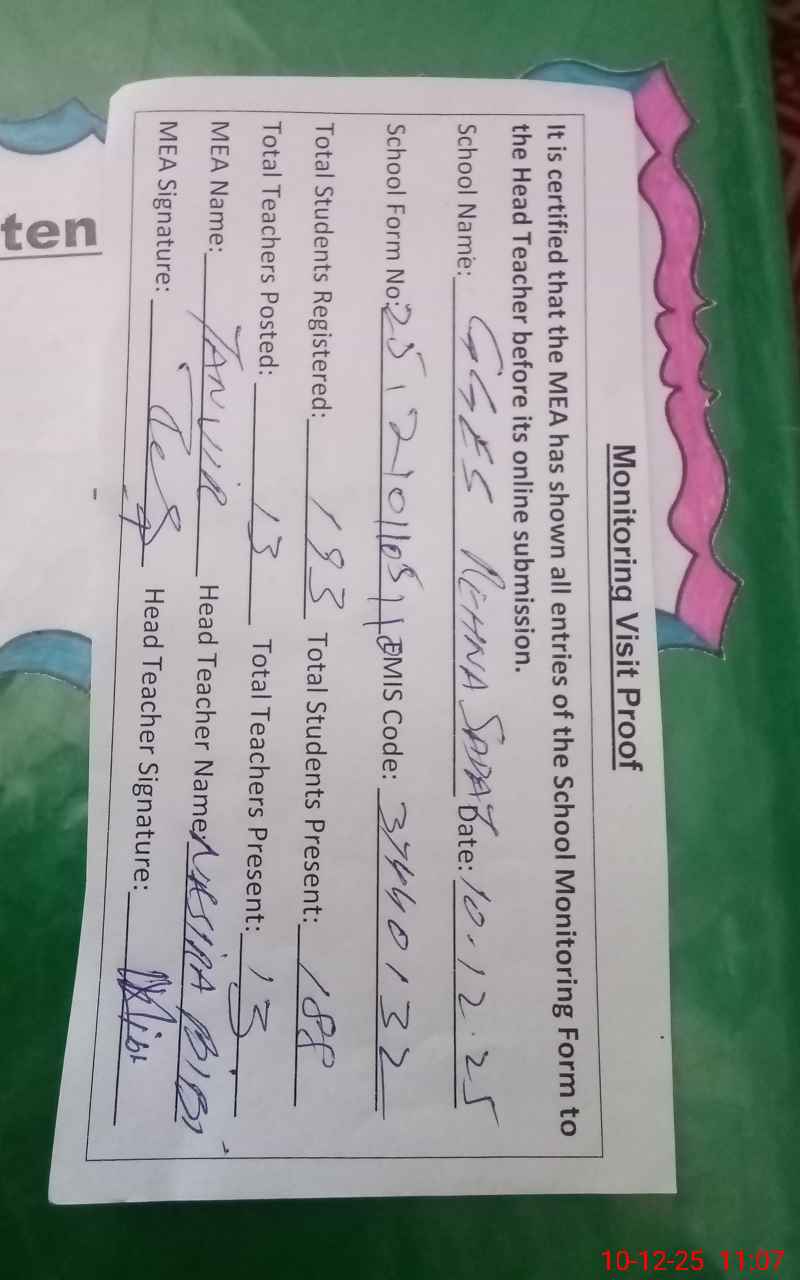 Monitoring Visit Proof
It is certified that the MEA has shown all entries of the School Monitoring Form to
the Head Teacher before its online submission.
School Name: GGES REHNA SADAT Date: 10.12.25
School Form No: EMIS Code: 37440132
Total Students Registered: 193 Total Students Present: 188
Total Teachers Posted: 13 Total Teachers Present: 13
MEA Name: TANVIR Head Teacher Name: NASIRA BIBI
MEA Signature: Head Teacher Signature:
ten
10-12-25 11:07